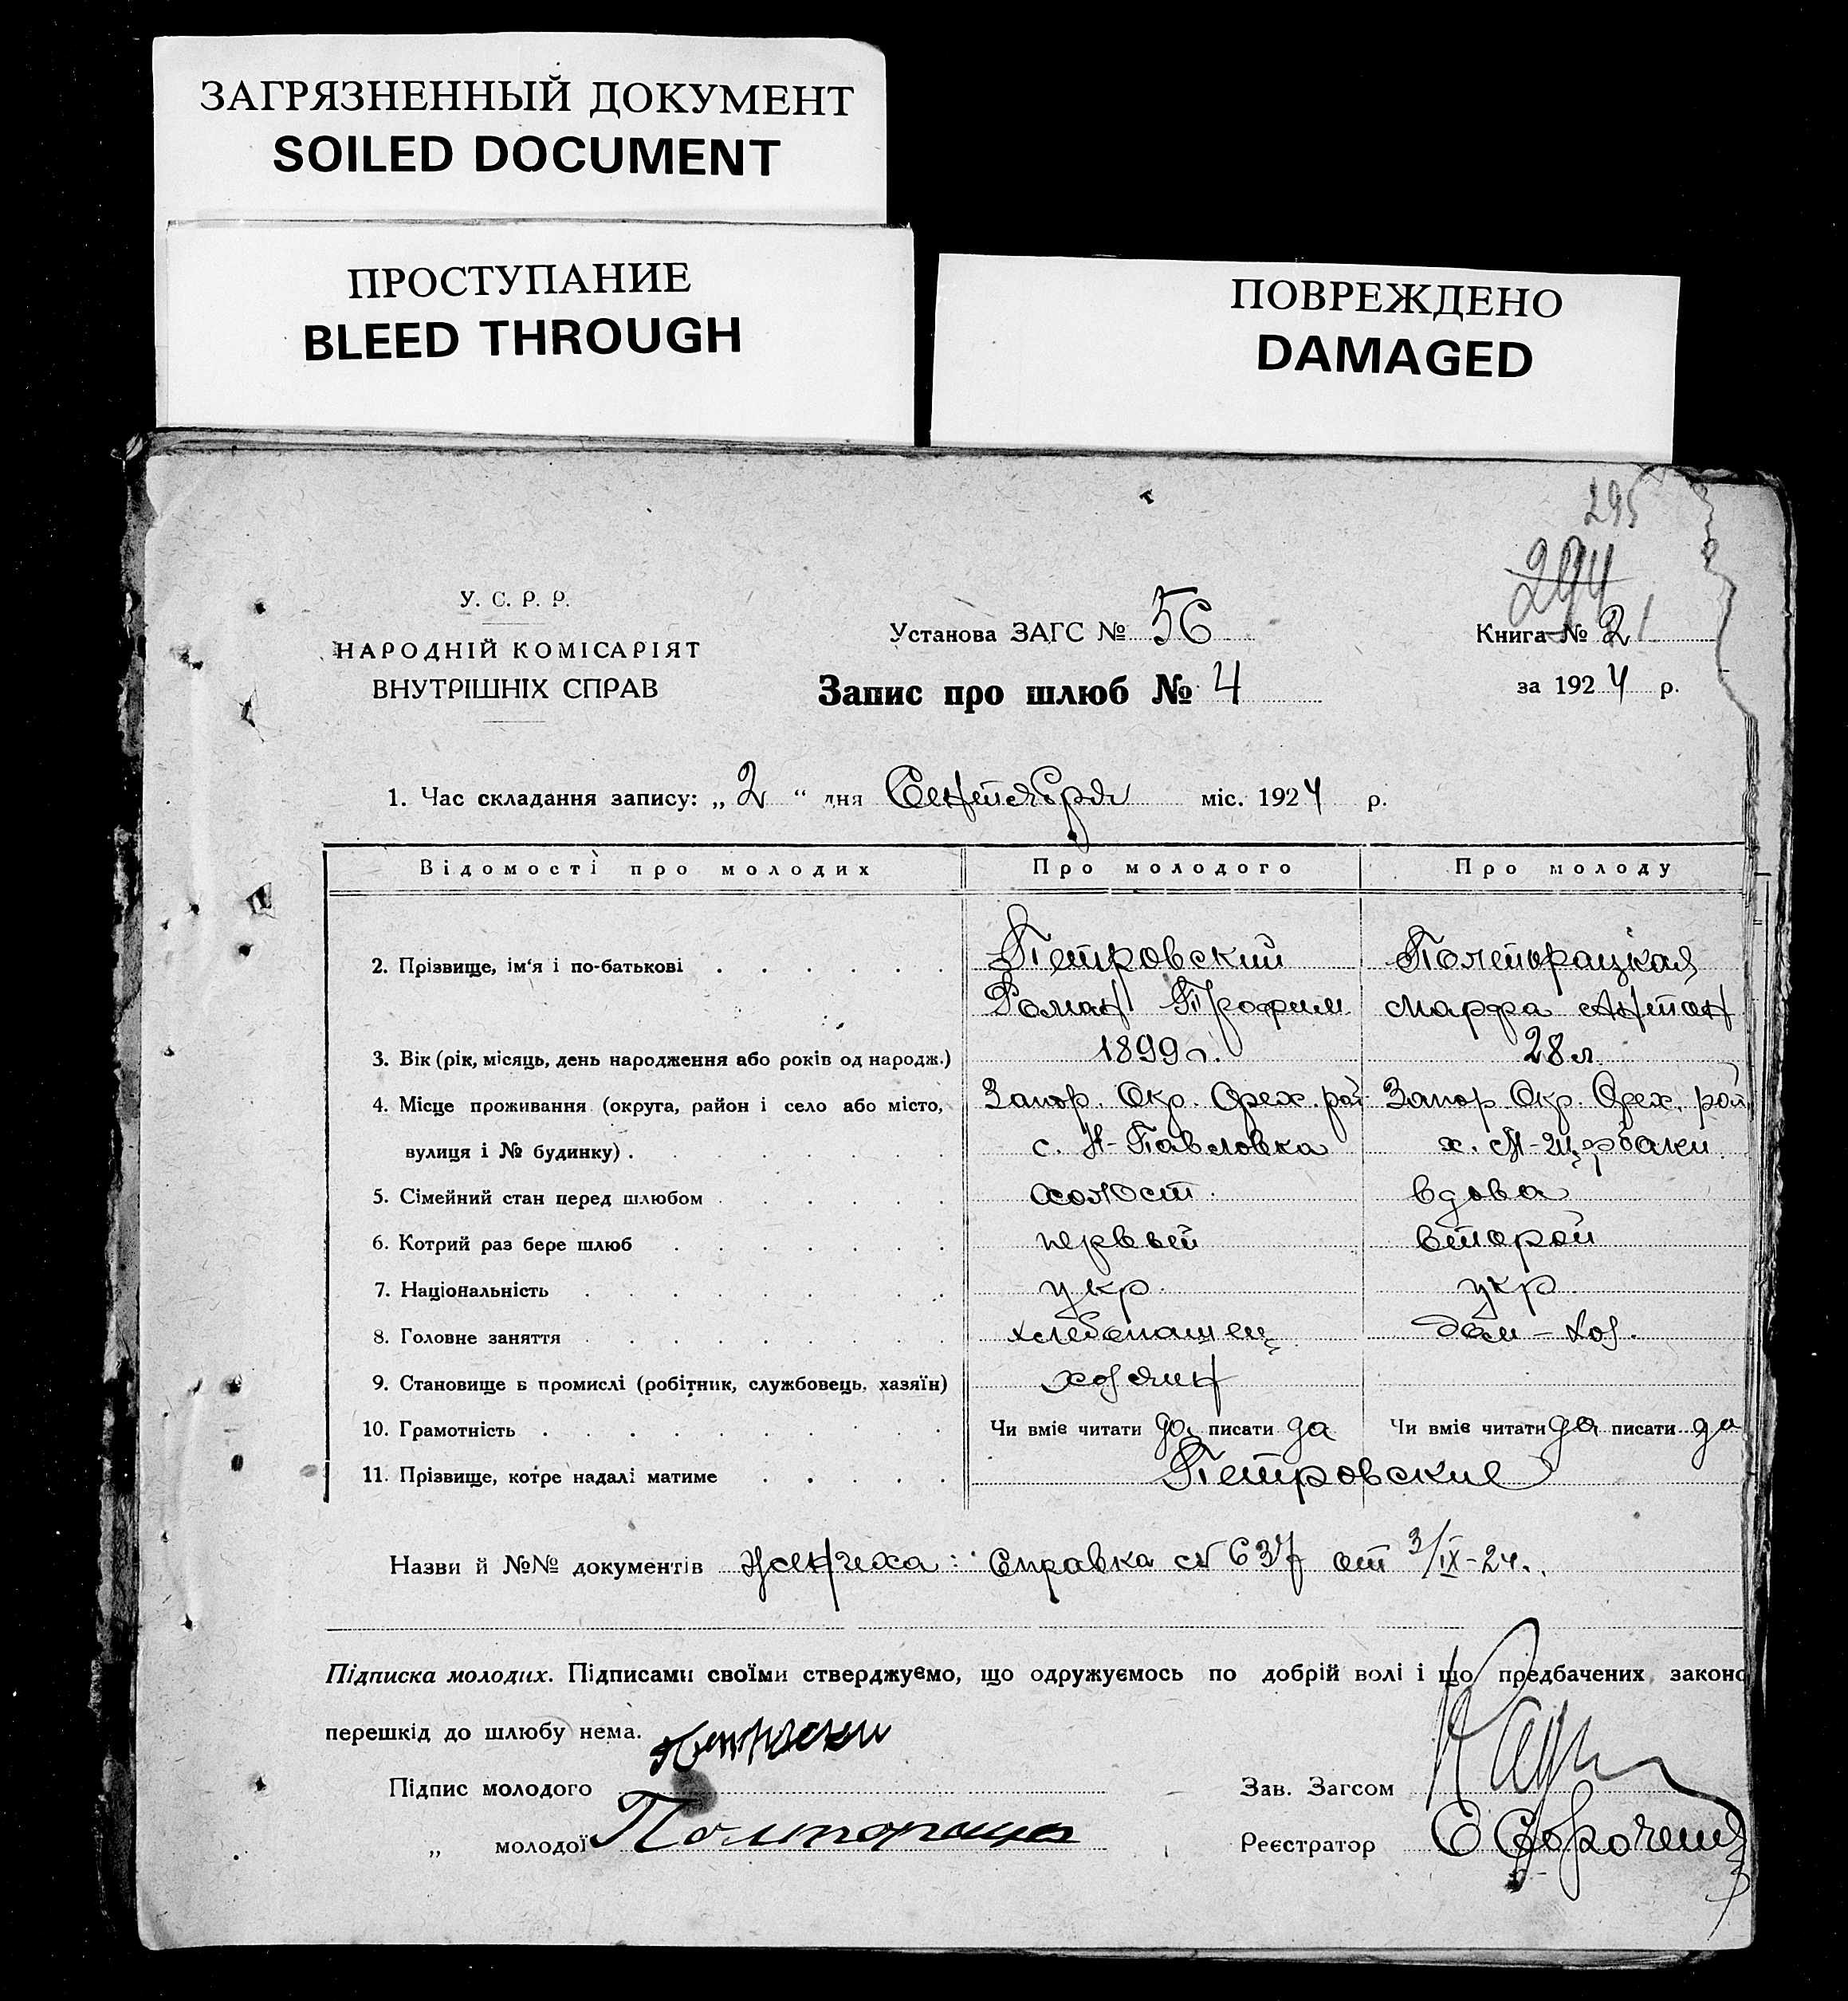 ЗАГРЯЗНЕННЫЙ ДОКУМЕНТ
SOILED DOCUMENT
ПРОСТУПАНИЕ
BLEED THROUGH
ПОВРЕЖДЕНО
DAMAGED
295
294
У. С. Р. Р.
НАРОДНІЙ КОМІСАРІЯТ
ВНУТРІШНІХ СПРАВ
Установа ЗАГС № 56
Запис про шлюб № 4
Книга № 21
за 1924 р.
1. Час складання запису: „ 2 “ дня Сентября міс. 1924 р.
Відомості про молодих Про молодого Про молоду
2. Прізвище, ім'я і по-батькові Петровский Полторацкая
Роман Трофим Марфа Антон
3. Вік (рік, місяць, день народження або років од народж.) 1899 г. 28 л
4. Місце проживання (округа, район і село або місто, Запор. Окр. Орех. рай Запор. Окр. Орех. рай
вулиця і № будинку) с. Н-Павловка х. М-Щербаки
5. Сімейний стан перед шлюбом холост. вдова
6. Котрий раз бере шлюб первый второй
7. Національність укр. укр.
8. Головне заняття хлебопашец дом-хоз.
9. Становище в промислі (робітник, службовець, хазяїн) хозяин
10. Грамотність Чи вміє читати да писати да Чи вміє читати да писати да
11. Прізвище, котре надалі матиме Петровские
Назви й №№ документів жениха: Справка № 637 от 3/IX-24.
Підписка молодих. Підписами своїми стверджуємо, що одружуємось по добрій волі і що предбачених законо
перешкід до шлюбу нема.
Підпис молодого Петровски
Зав. Загсом
„ молодої Полтораца
Реєстратор